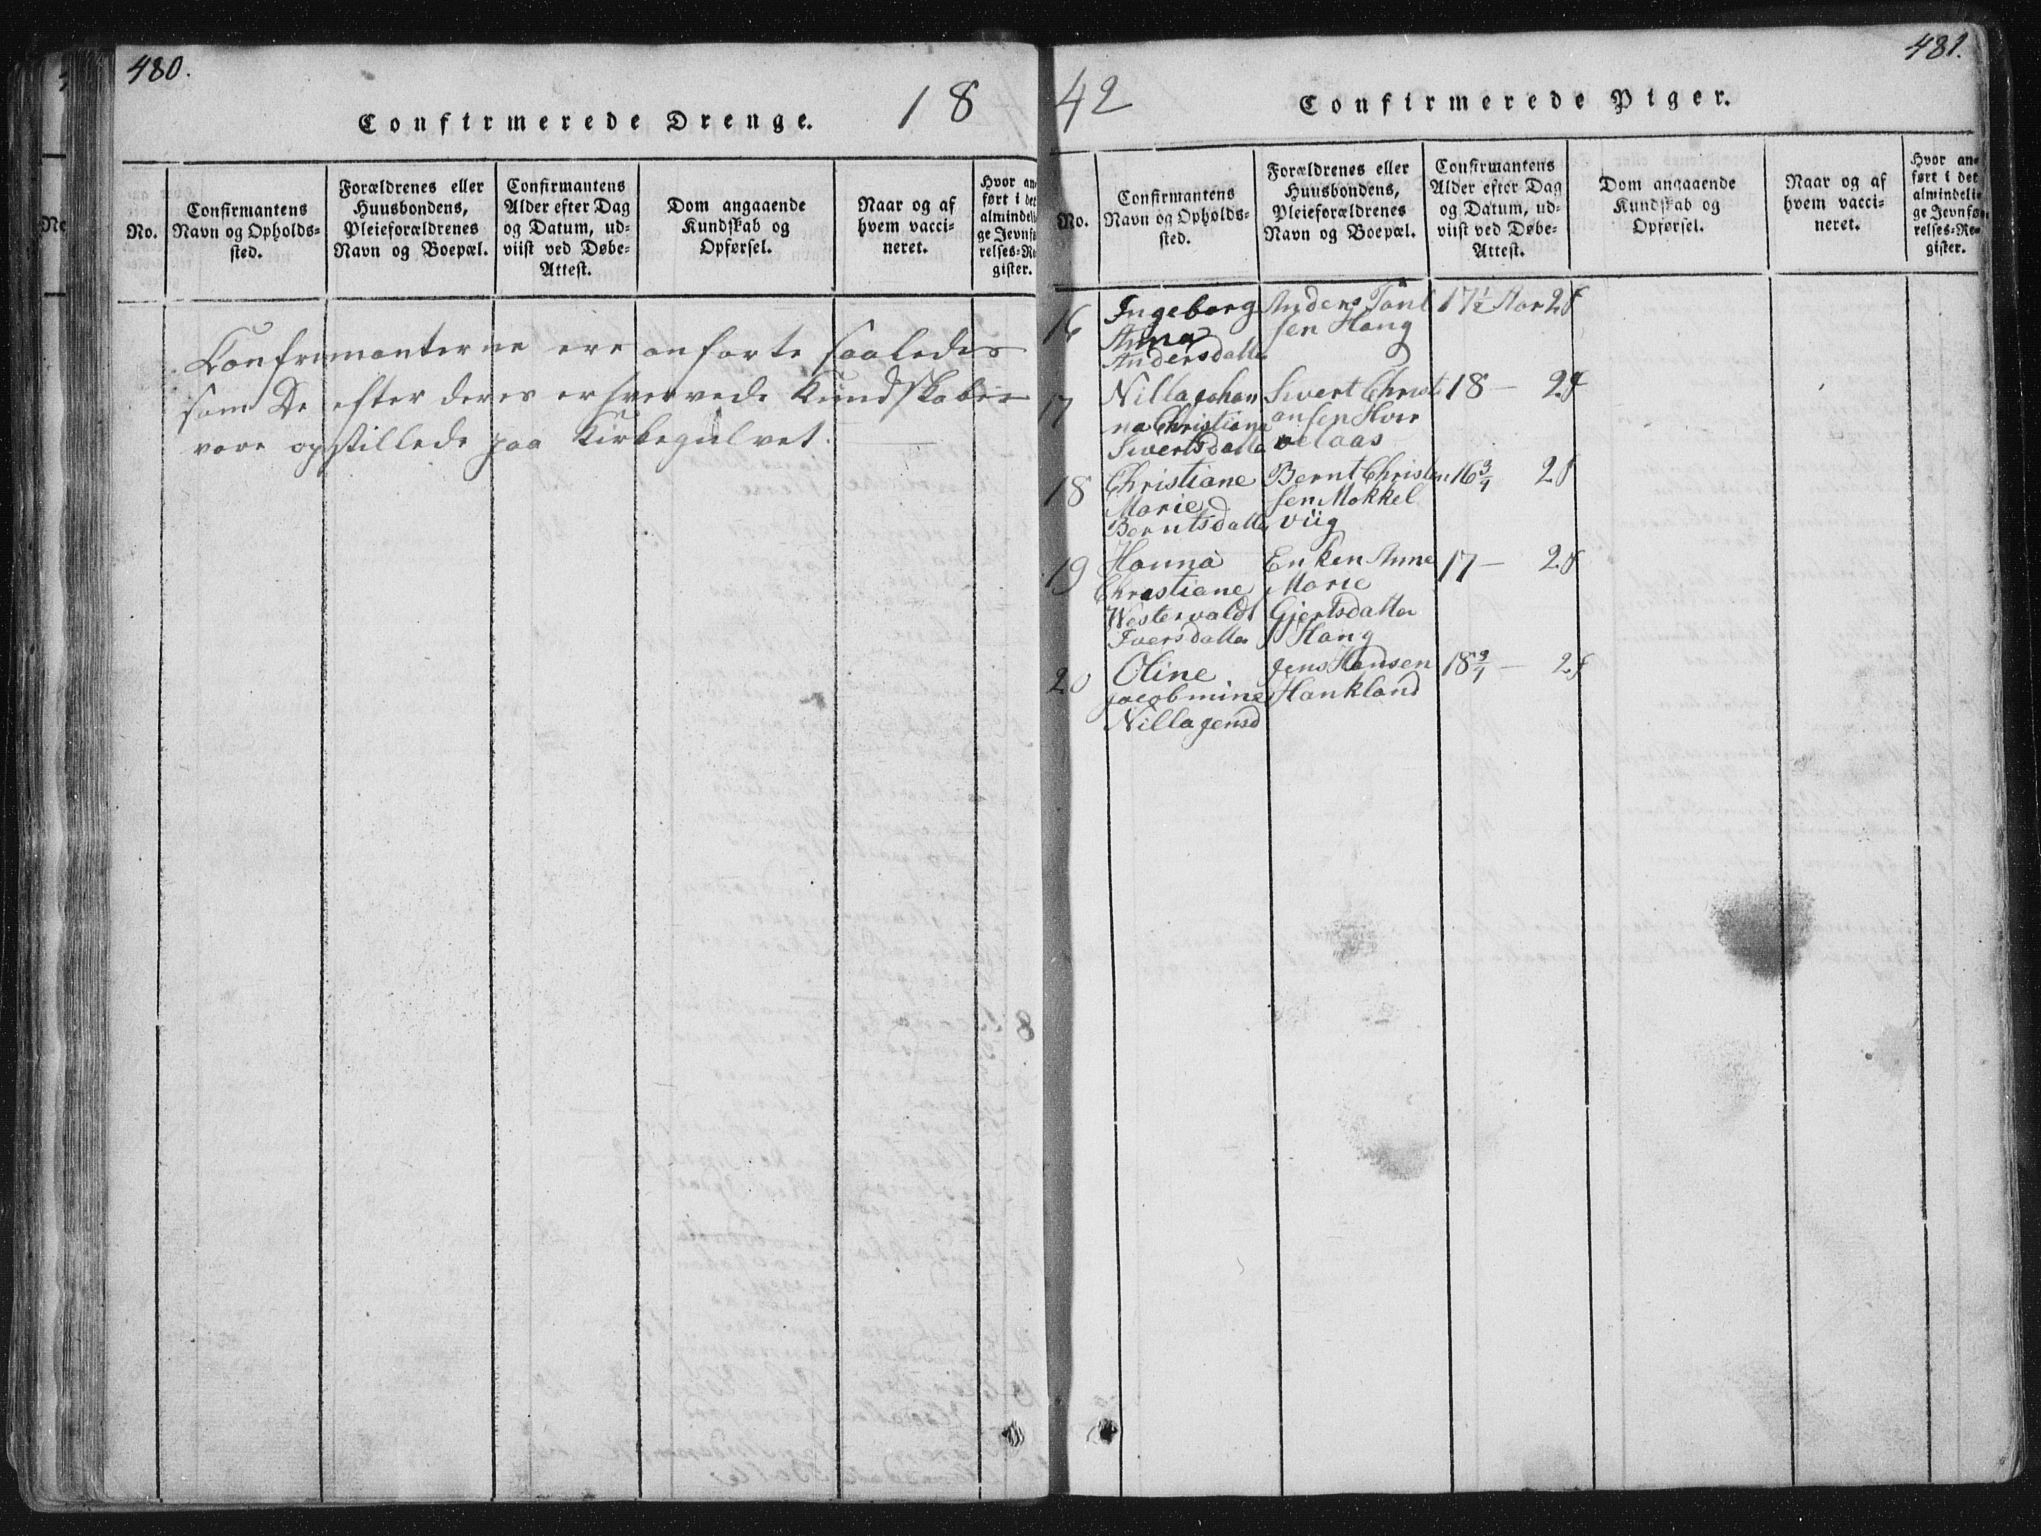 480.
Confirmerede Drenge.
18
No.
Confirmantens
Navn og Opholds-
sted.
Forældrenes eller
Huusbondens,
Pleieforældrenes
Navn og Boepæl.
Confirmantens
Alder efter Dag
og Datum, ud-
viist ved Døbe-
Attest.
Dom angaaende
Kundskab og
Opførsel.
Naar og af
hvem vacci-
neret.
Hvor an
ført i det
almindeli
ge Jevnfø
relses-Re
gister.
Confirmanterne ere anførte saaledes
som De efter deres erhvervede Kundskaber
vare opstillede paa Kirkegulvet.
42
Confirmerede Piger.
481.
No.
Confirmantens
Navn og Opholds-
sted.
Forældrenes eller
Huusbondens,
Pleieforældrenes
Navn og Boepæl.
Confirmantens
Alder efter Dag
og Datum, ud-
viist ved Døbe-
Attest.
Dom angaaende
Kundskab og
Opførsel.
Naar og af
hvem vacci-
neret.
Hvor an-
ført i det
almindeli-
ge Jevnfø-
relses-Re-
gister.
16 Ingeborg Anders 17 1/2 Aar
Anna sen Hang
Andersdatter
17 Nilla Johan Siwert Christi 18 —
na Christiana ansen
Siwertsdatter
18 Christiane Bernt Christen 16 3/4
Marie sen Mokkel
Berntsdatter viig
19 Hanna Enken Anne 17 —
Christiane Marie
Westervaldt Gjertsdatter
Iversdatter Hang
20 Oline Jens Hansen 18 3/4 —
Jacobmine Haukland
Nilla Jensd